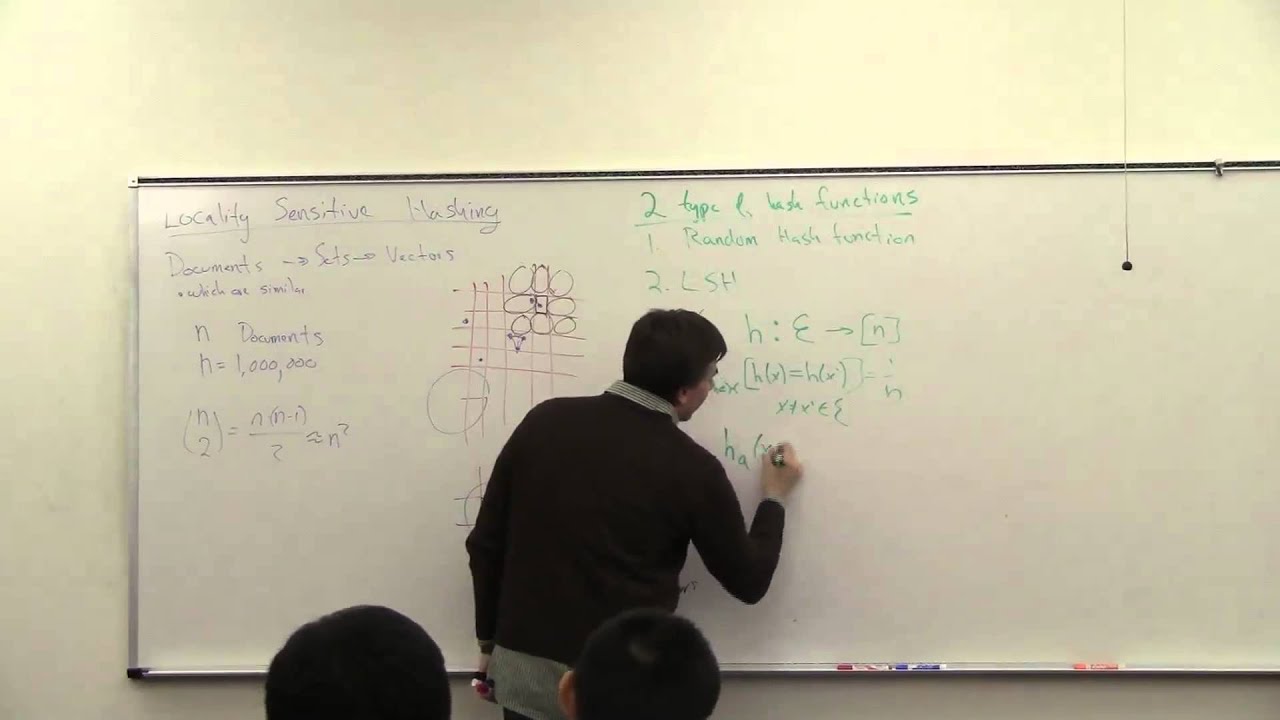 Locality Sensitive Hashing
Documents → Sets → Vectors
• which are similar
n Documents
n = 1,000,000
(n 2) = n(n-1) / 2 ≈ n²
2 type of hash functions
1. Random Hash function
2. LSH
h : Σ → [n]
[h(x) = h(x')] = 1/n
x ≠ x' ∈ Σ
hₐ(x